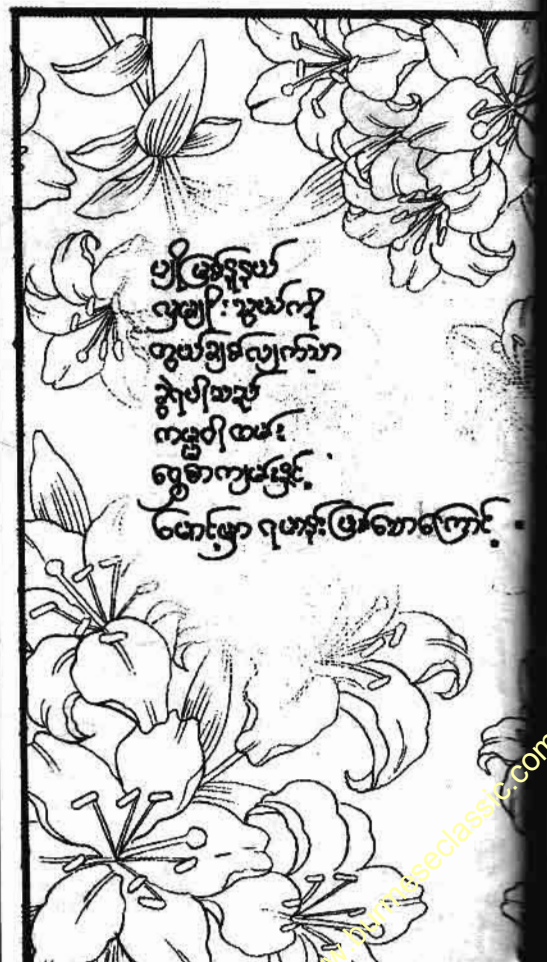 ပျိုမြစ်နုနယ်
လှမျိုးသွယ်ကို
တွယ်ချစ်လျှက်သာ
ခွဲရပါသည်
ကမ္မဝါထမ်း
ရွှေစာကျမ်းနှင့်
မောင့်မှာ ရဟန်းဖြစ်သောကြောင့် ။
www.burmeseclassic.com